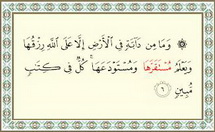 ۞ وَمَا مِن دَآبَّةٍ فِي ٱلْأَرْضِ إِلَّا عَلَى ٱللَّهِ رِزْقُهَا
وَيَعْلَمُ مُسْتَقَرَّهَا وَمُسْتَوْدَعَهَا ۚ كُلٌّ فِي كِتَٰبٍ
مُّبِينٍ ٦